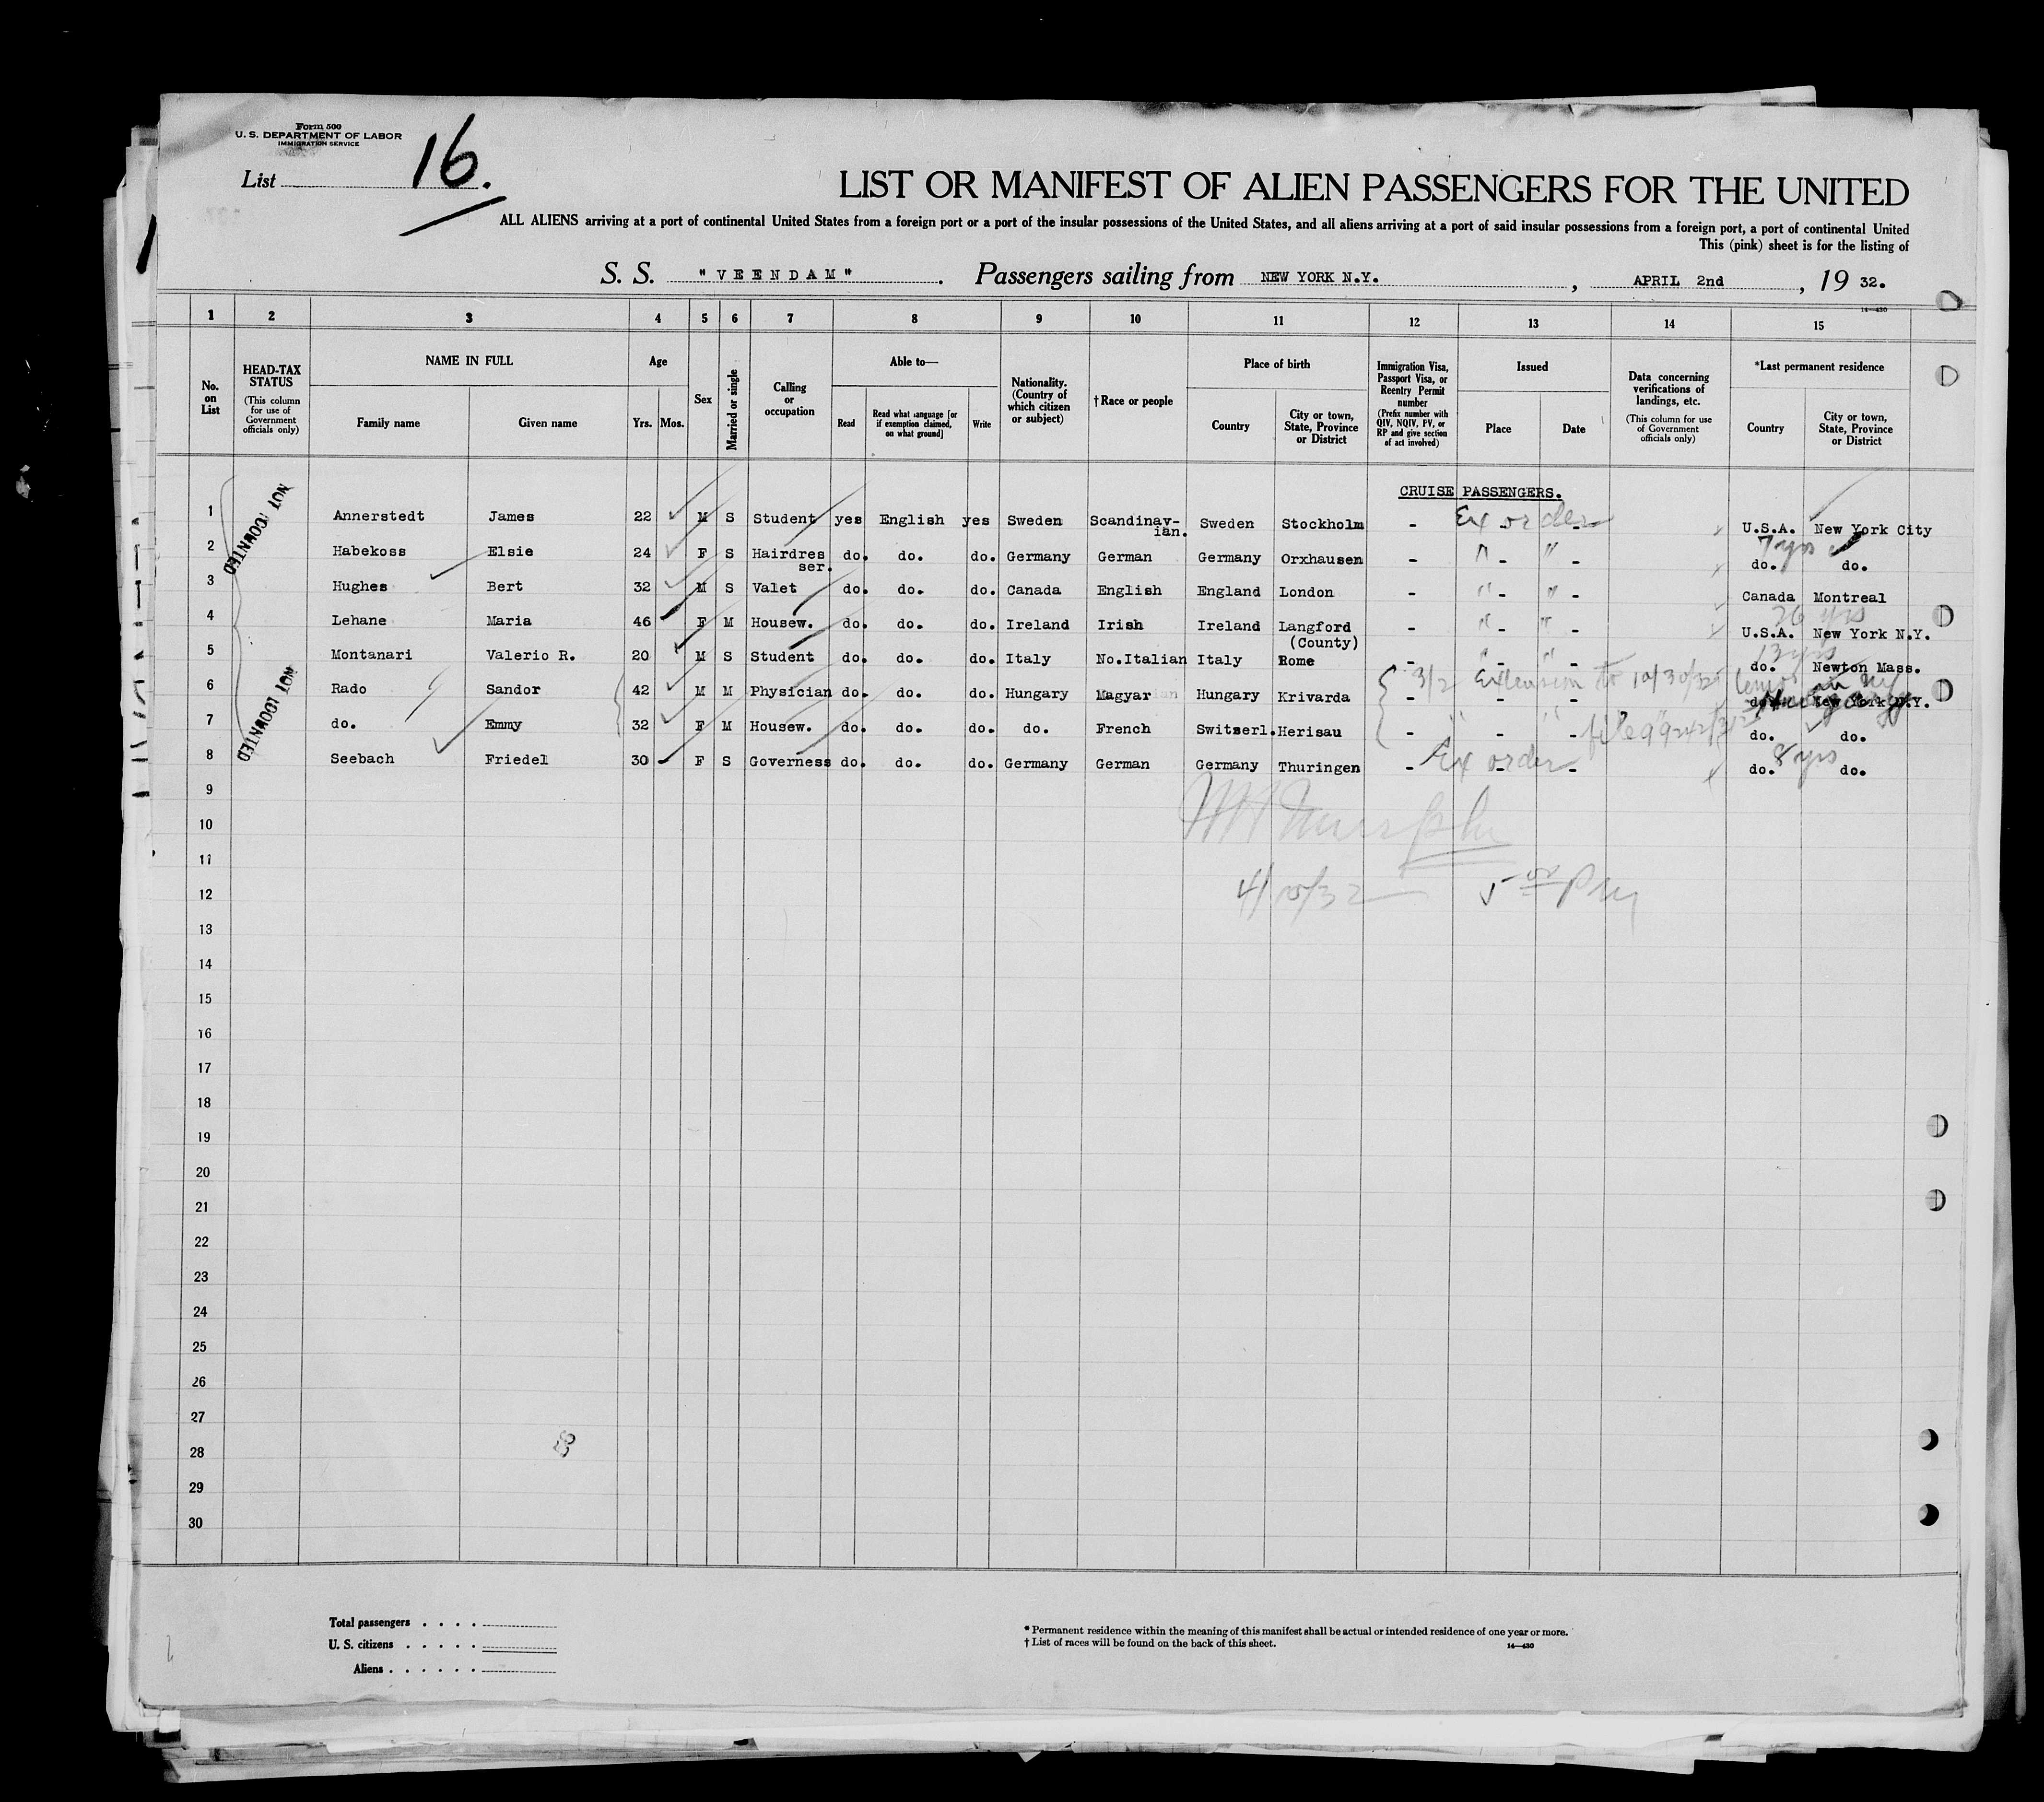 Form 500
U. S. DEPARTMENT OF LABOR
IMMIGRATION SERVICE
List 16.
LIST OR MANIFEST OF ALIEN PASSENGERS FOR THE UNITED
ALL ALIENS arriving at a port of continental United States from a foreign port or a port of the insular possessions of the United States, and all aliens arriving at a port of said insular possessions from a foreign port, a port of continental United
This (pink) sheet is for the listing of
S. S. "VEENDAM". Passengers sailing from NEW YORK N.Y., APRIL 2nd, 19 32.
14—430
1 2 3 4 5 6 7 8 9 10 11 12 13 14 15
No. on List
HEAD-TAX STATUS (This column for use of Government officials only)
NAME IN FULL
Family name Given name
Age
Yrs. Mos.
Sex
Married or single
Calling or occupation
Able to—
Read Read what language [or if exemption claimed, on what ground] Write
Nationality. (Country of which citizen or subject)
†Race or people
Place of birth
Country City or town, State, Province or District
Immigration Visa, Passport Visa, or Reentry Permit number (Prefix number with QIV, NQIV, PV, or RP and give section of act involved)
Issued
Place Date
Data concerning verifications of landings, etc. (This column for use of Government officials only)
*Last permanent residence
Country City or town, State, Province or District
NOT COUNTED
NOT COUNTED
CRUISE PASSENGERS.
1 Annerstedt James 22 M S Student yes English yes Sweden Scandinav-ian. Sweden Stockholm - Ex order - - U.S.A. New York City
2 Habekoss Elsie 24 F S Hairdres ser. do. do. do. Germany German Germany Orxhausen - " - " - 7 yrs do. do.
3 Hughes Bert 32 M S Valet do. do. do. Canada English England London - " - " - Canada Montreal
4 Lehane Maria 46 F M Housew. do. do. do. Ireland Irish Ireland Langford (County) - " - " - 26 yrs U.S.A. New York N.Y.
5 Montanari Valerio R. 20 M S Student do. do. do. Italy No.Italian Italy Rome - " - " - 13 yrs do. Newton Mass.
6 Rado Sandor 42 M M Physician do. do. do. Hungary Magyar Hungary Krivarda - 3/2 Extension to 10/30/32 - - do. New York N.Y. Hungary
7 do. Emmy 32 F M Housew. do. do. do. do. French Switzerl. Herisau - " - " - file do. do.
8 Seebach Friedel 30 F S Governess do. do. do. Germany German Germany Thuringen - Ex order - - 8 yrs do. do.
9
10
11
12
13
14
15
16
17
18
19
20
21
22
23
24
25
26
27
28
29
30
Total passengers . . . .
U. S. citizens . . . . .
Aliens . . . . . .
* Permanent residence within the meaning of this manifest shall be actual or intended residence of one year or more.
† List of races will be found on the back of this sheet.
14—430